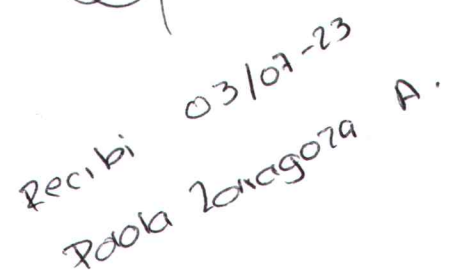 Recibi 03/07-23
Paola Zaragoza A.